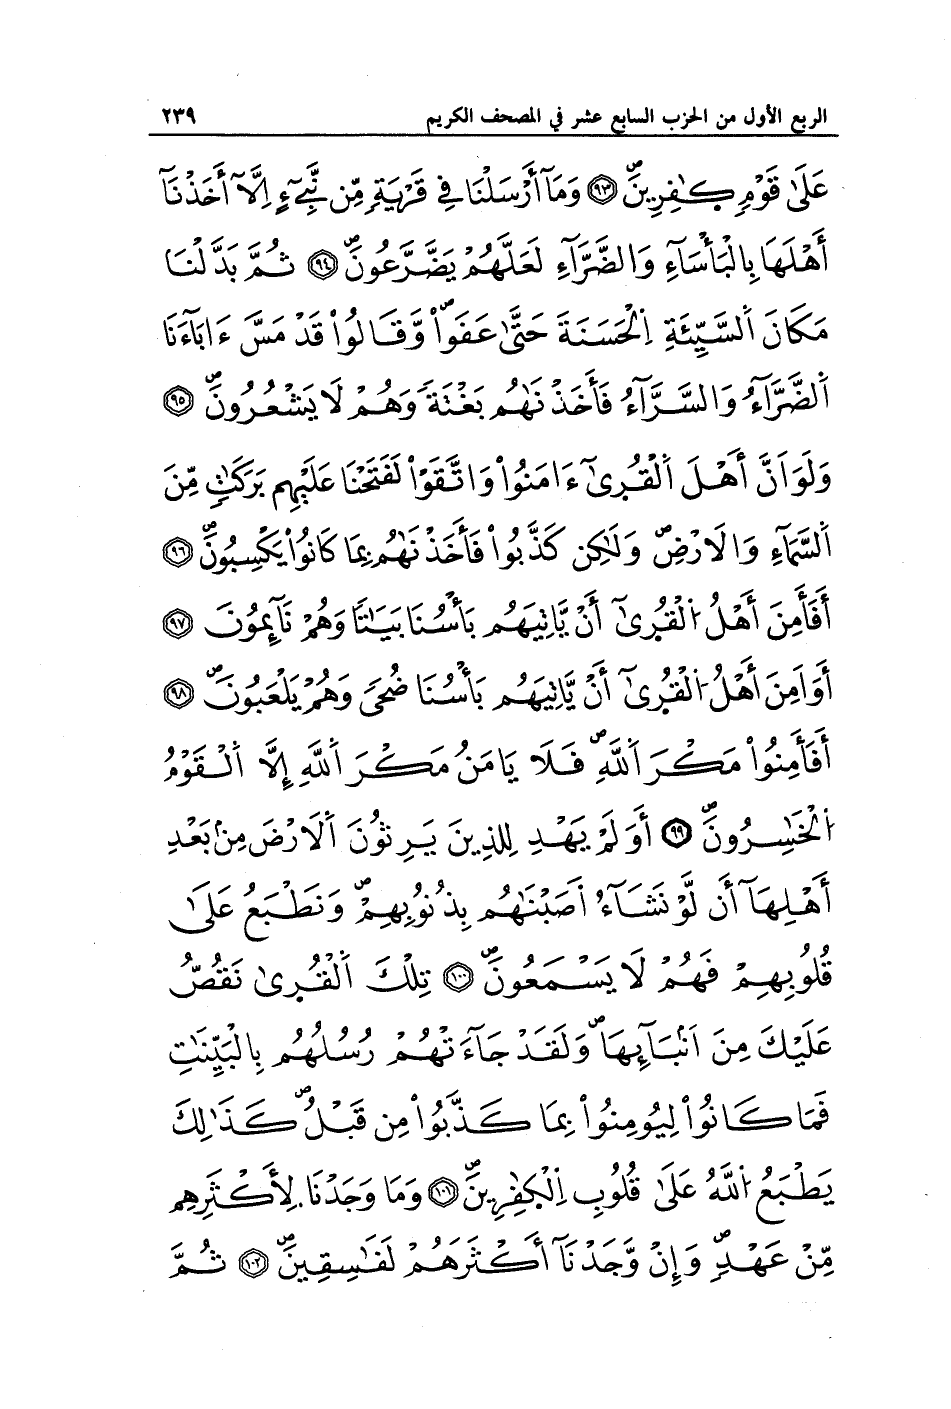 الربع الأول من الحزب السابع عشر في المصحف الكريم ٢٣٩
عَلَىٰ قَوْمٍ كَـٰفِرِينَۖ ٩٣ وَمَآ أَرْسَلْنَا فِى قَرْيَةٍ مِّن نَّبِىٓءٍ اِلَّآ أَخَذْنَآ
أَهْلَهَا بِالْبَأْسَآءِ وَالضَّرَّآءِ لَعَلَّهُمْ يَضَّرَّعُونَۖ ٩٤ ثُمَّ بَدَّلْنَا
مَكَانَ اَلسَّيِّئَةِ اِلْحَسَنَةَ حَتَّىٰ عَفَواْۖ وَّقَالُواْ قَدْ مَسَّ ءَابَآءَنَا
اَلضَّرَّآءُ وَالسَّرَّآءُ فَأَخَذْنَـٰهُم بَغْتَةً وَهُمْ لَا يَشْعُرُونَۖ ٩٥
وَلَوَ اَنَّ أَهْلَ اَلْقُرٜىٰٓ ءَامَنُواْ وَاتَّقَوْاْ لَفَتَحْنَا عَلَيْهِم بَرَكَـٰتٍ مِّنَ
اَلسَّمَآءِ وَالَارْضِۖ وَلَـٰكِن كَذَّبُواْ فَأَخَذْنَـٰهُم بِمَا كَانُواْ يَكْسِبُونَۖ ٩٦
أَفَأَمِنَ أَهْلُ اُلْقُرٜىٰٓ أَنْ يَّاتِيَهُم بَأْسُنَا بَيَـٰتاً وَهُمْ نَآئِمُونَ ٩٧
أَوَ اَمِنَ أَهْلُ اُلْقُرٜىٰٓ أَنْ يَّاتِيَهُم بَأْسُنَا ضُحىً وَهُمْ يَلْعَبُونَۖ ٩٨
أَفَأَمِنُواْ مَكْرَ اَللَّهِۖ فَلَا يَامَنُ مَكْرَ اَللَّهِ إِلَّا اَلْقَوْمُ
اُلْخَـٰسِرُونَۖ ٩٩ أَوَلَمْ يَهْدِ لِلذِينَ يَرِثُونَ اَلَارْضَ مِنۢ بَعْدِ
أَهْلِهَآ أَن لَّوْ نَشَآءُ اَصَبْنَـٰهُم بِذُنُوبِهِمْۖ وَنَطْبَعُ عَلَىٰ
قُلُوبِهِمْ فَهُمْ لَا يَسْمَعُونَۖ ١٠٠ تِلْكَ اَلْقُرٜىٰ نَقُصُّ
عَلَيْكَ مِنَ اَنۢبَآئِهَاۖ وَلَقَدْ جَآءَتْهُمْ رُسُلُهُم بِالْبَيِّنَـٰتِ
فَمَا كَانُواْ لِيُومِنُواْ بِمَا كَذَّبُواْ مِن قَبْلُۖ كَذَٰلِكَ
يَطْبَعُ اُللَّهُ عَلَىٰ قُلُوبِ اِلْكٜـٰفِرِينَۖ ١٠١ وَمَا وَجَدْنَا لِأَكْثَرِهِم
مِّنْ عَهْدٍۖ وَإِنْ وَّجَدْنَآ أَكْثَرَهُمْ لَفَـٰسِقِينَۖ ١٠٢ ثُمَّ